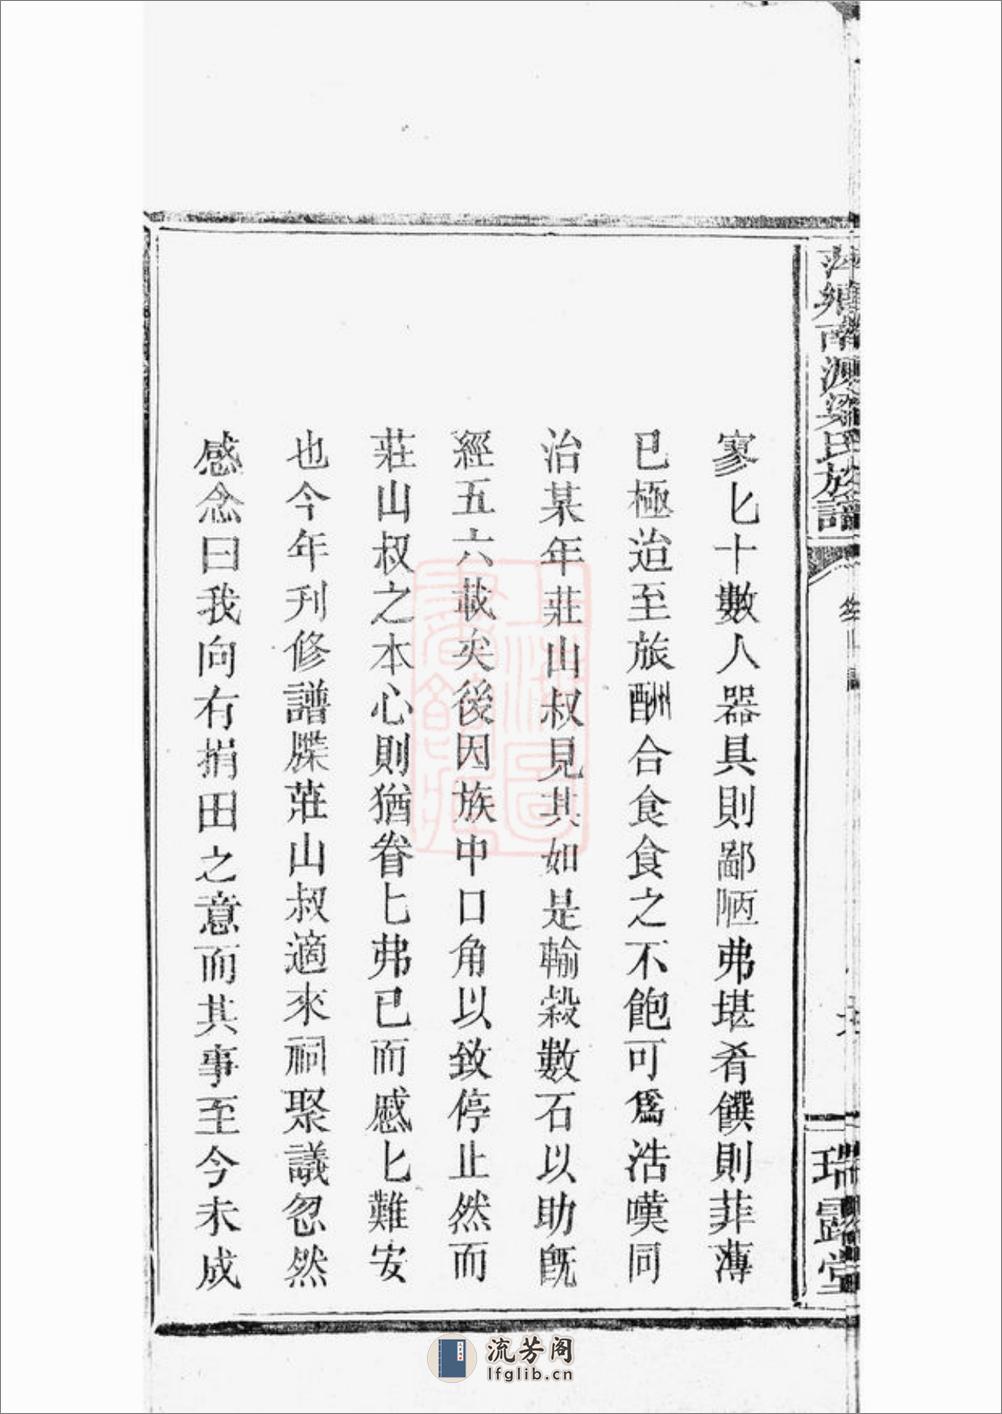 寥匕十數人器具則鄙陋弗堪肴饌則菲薄
已極迨至旅酬合食食之不飽可爲浩嘆同
治某年莊山叔見其如是輸穀數石以助旣
經五六載矣後因族中口角以致停止然而
莊山叔之本心則猶眷匕弗已而慼匕難安
也今年刋修譜牒莊山叔適來祠聚議忽然
感念曰我向有捐田之意而其事至今未成
萍鄉南源梁氏族譜
瑞露堂
上海圖
書館藏
流芳阁
lfglib.cn